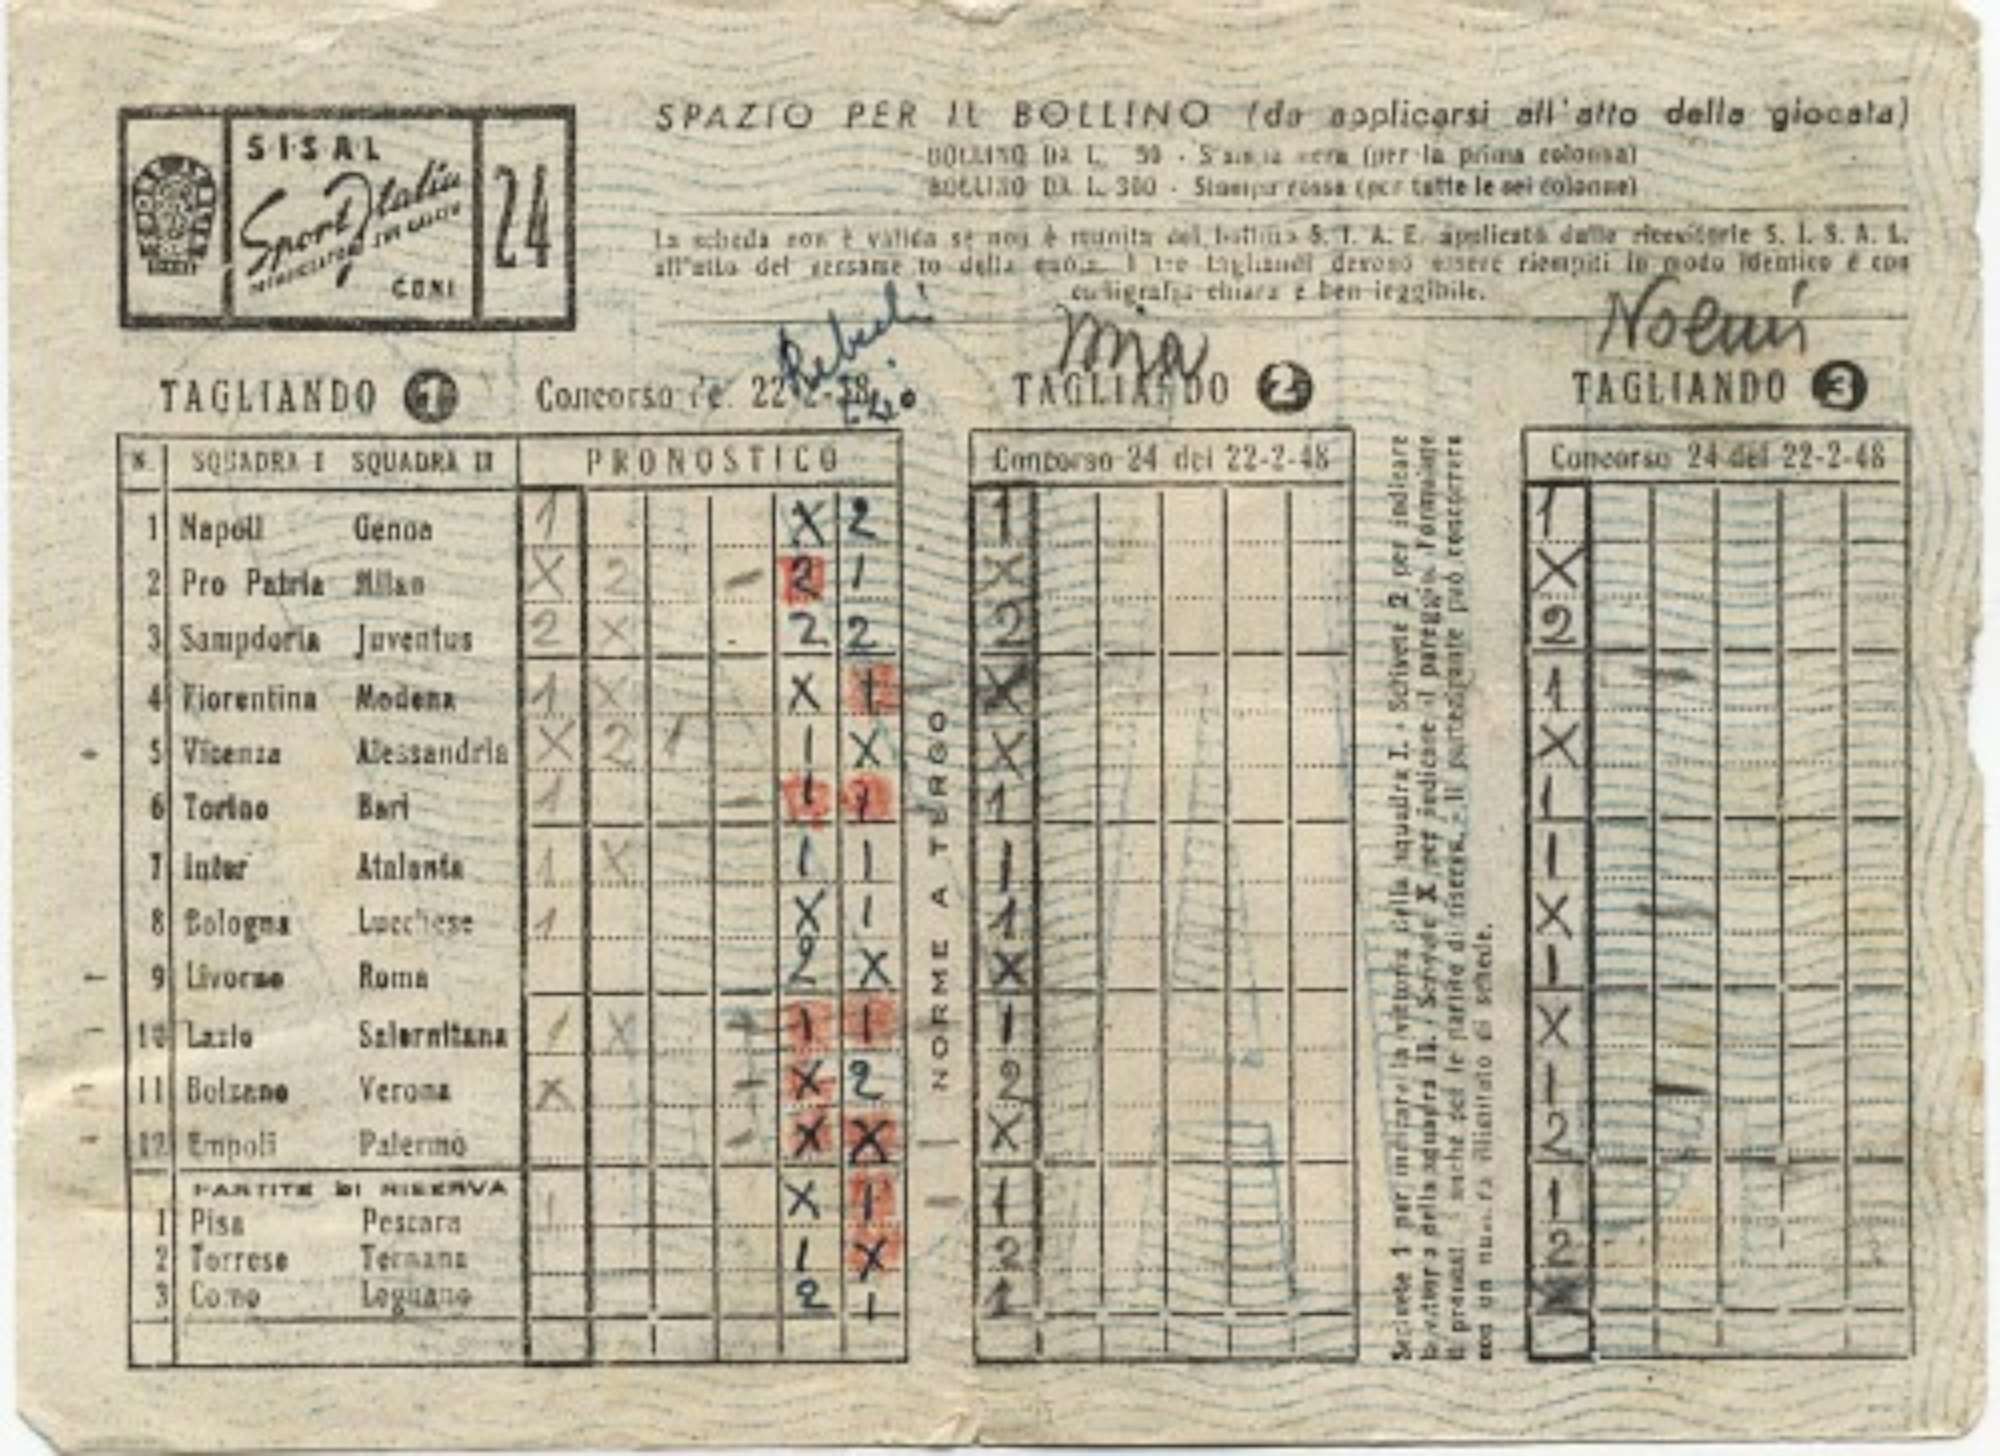 S.I.S.A.L
Sport Italia
CONI
24
SPAZIO PER IL BOLLINO (da applicarsi all'atto della giocata)
BOLLINO DA L. 50 - Stampa nera (per la prima colonna)
BOLLINO DA L. 300 - Stampa rossa (per tutte le sei colonne)
La scheda non è valida se non è munita del bollino S. I. A. E. applicato dalle ricevitorie S. I. S. A. L.
all'atto del versamento della quota. I tre tagliandi devono essere riempiti in modo identico e con
calligrafia chiara e ben leggibile.
Mia
Noemi
TAGLIANDO 1 Concorso 22-2-48
TAGLIANDO 2
TAGLIANDO 3
N. SQUADRA I SQUADRA II PRONOSTICO
Concorso 24 del 22-2-48
Concorso 24 del 22-2-48
1 Napoli Genoa 1 X 2 1 1
2 Pro Patria Milan X 2 - 2 1 X X
3 Sampdoria Juventus 2 X 2 2 2 2
4 Fiorentina Modena 1 X X 1 X 1
5 Vicenza Alessandria X 2 1 1 X X X
6 Torino Bari 1 - 1 1 1 1
7 Inter Atalanta 1 X 1 1 1 1
8 Bologna Lucchese 1 X 1 1 X
9 Livorno Roma 2 X X 1
10 Lazio Salernitana 1 X - 1 1 1 X
11 Bolzano Verona X - X 2 2 1
12 Empoli Palermo - X X X 2
PARTITE DI RISERVA
1 Pisa Pescara 1 X 1 1 1
2 Torrese Ternana 1 X 2 2
3 Como Legnano 2 1 1
NORME A TERGO
Scrivete 1 per indicare la vittoria della squadra I. - Scrivete 2 per indicare
la vittoria della squadra II. - Scrivete X per indicare il pareggio.